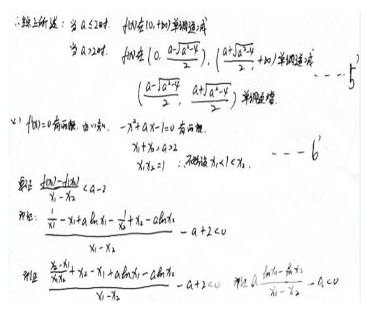 ∴综上所述：当 a≤2时. f(x)在(0,+∞)单调递减
当 a>2时. f(x)在(0, (a-√(a²-4))/2), ((a+√(a²-4))/2, +∞)单调递减
((a-√(a²-4))/2, (a+√(a²-4))/2) 单调递增. ----5'
f'(x)=0有两根. 由(1)知. -x²+ax-1=0有两根.
x₁+x₂=a>2
x₁x₂=1 ∴不妨设 x₁<1<x₂. ---6'
要证 (f(x₁)-f(x₂))/(x₁-x₂) < a-2
即证: (1/x₁-x₁+a ln x₁-1/x₂+x₂-a ln x₂)/(x₁-x₂) - a+2<0
即证 ((x₂-x₁)/(x₁x₂)+x₂-x₁+a ln x₁-a ln x₂)/(x₁-x₂) - a+2<0 即证 a (ln x₁-ln x₂)/(x₁-x₂) - a<0